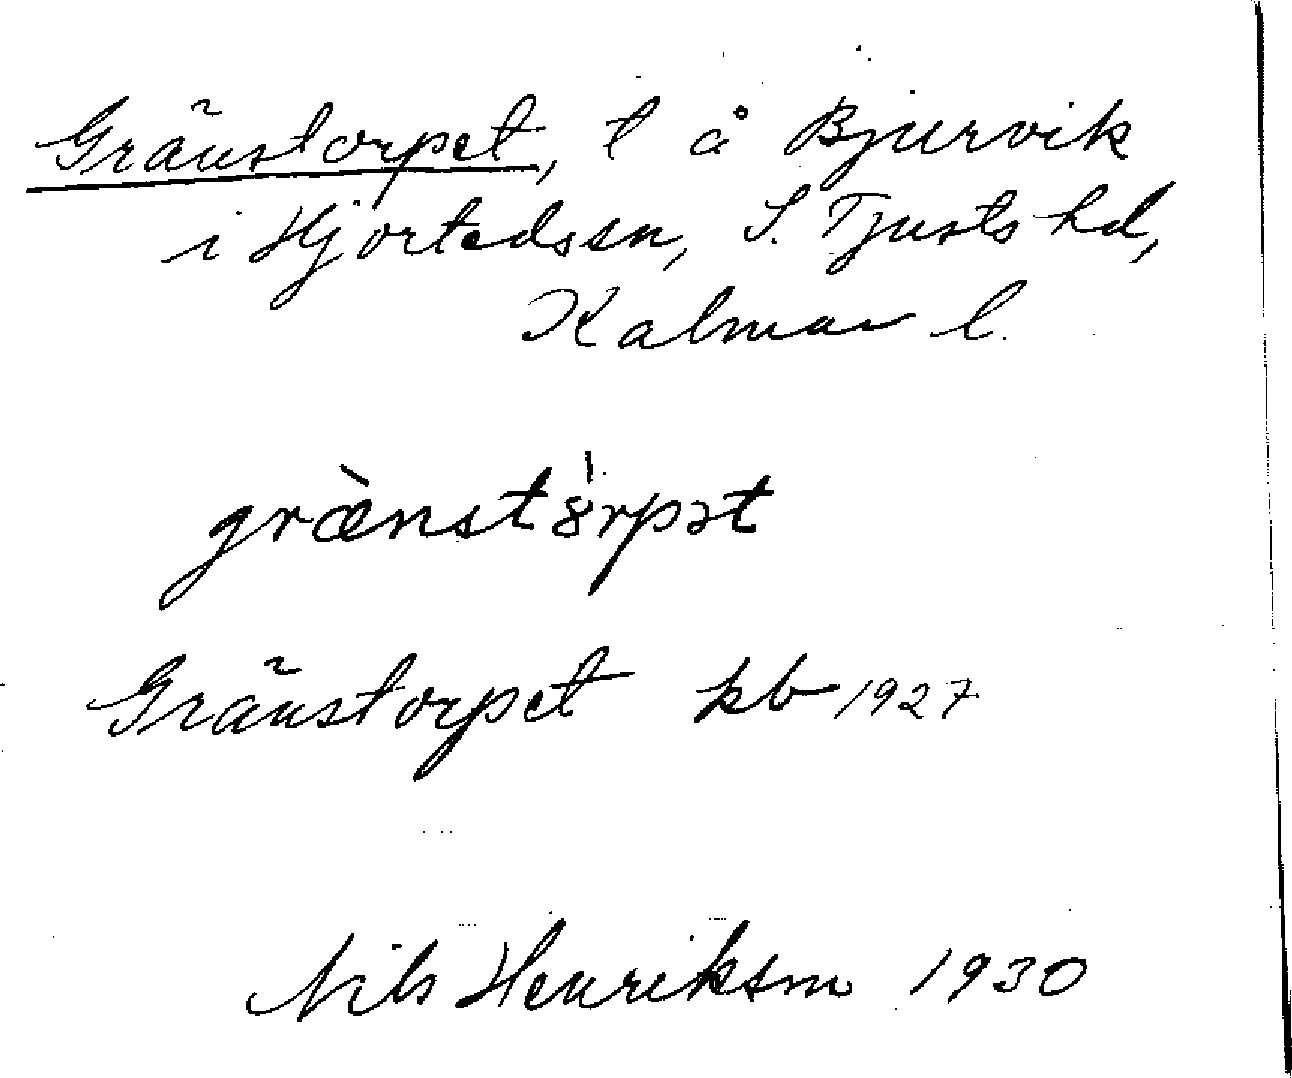 Gränstorpet, t å Bjurvik
i Hjorteds sn, S. Tjusts hd,
Kalmar l.
Gränstorpet kb 1927
Nils Henrikson 1930